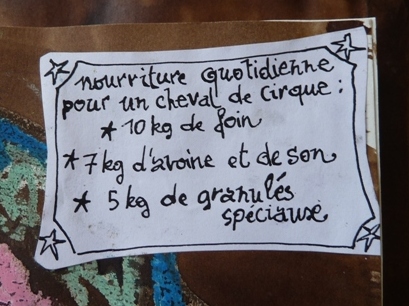 nourriture quotidienne
pour un cheval de cirque :
* 10 kg de foin
* 7 kg d'avoine et de son
* 5 kg de granulés
spéciaux